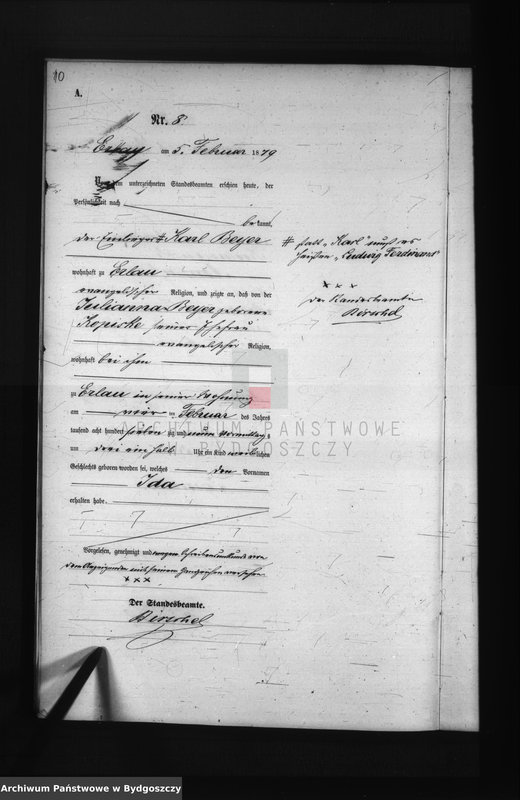 10
A.
Nr. 8.
am 5. Februar 1879
Vor dem unterzeichneten Standesbeamten erschien heute, der
Persönlichkeit nach
bekannt,
der Einlieger # Karl Beyer
# statt „Karl" muß es
heißen „Ludwig Ferdinand"
wohnhaft zu Erlau
evangelischer Religion, und zeigte an, daß von der
Julianna Beyer geborene
Kopischke seiner Ehefrau
evangelischer Religion,
wohnhaft bei ihm
x x x
Der Standesbeamte
Birschel
zu Erlau in seiner Wohnung
am vier ten Februar des Jahres
tausend acht hundert siebenzig und neun Vormittags
um drei ein halb Uhr ein Kind weiblichen
Geschlechts geboren worden sei, welches den Vornamen
Ida
erhalten habe.
Vorgelesen, genehmigt und wegen Schreibensunkunde von
dem Anzeigenden mit seinem Handzeichen versehen
x x x
Der Standesbeamte.
Birschel
ARCHIWUM PAŃSTWOWE
W BYDGOSZCZY
Archiwum Państwowe w Bydgoszczy